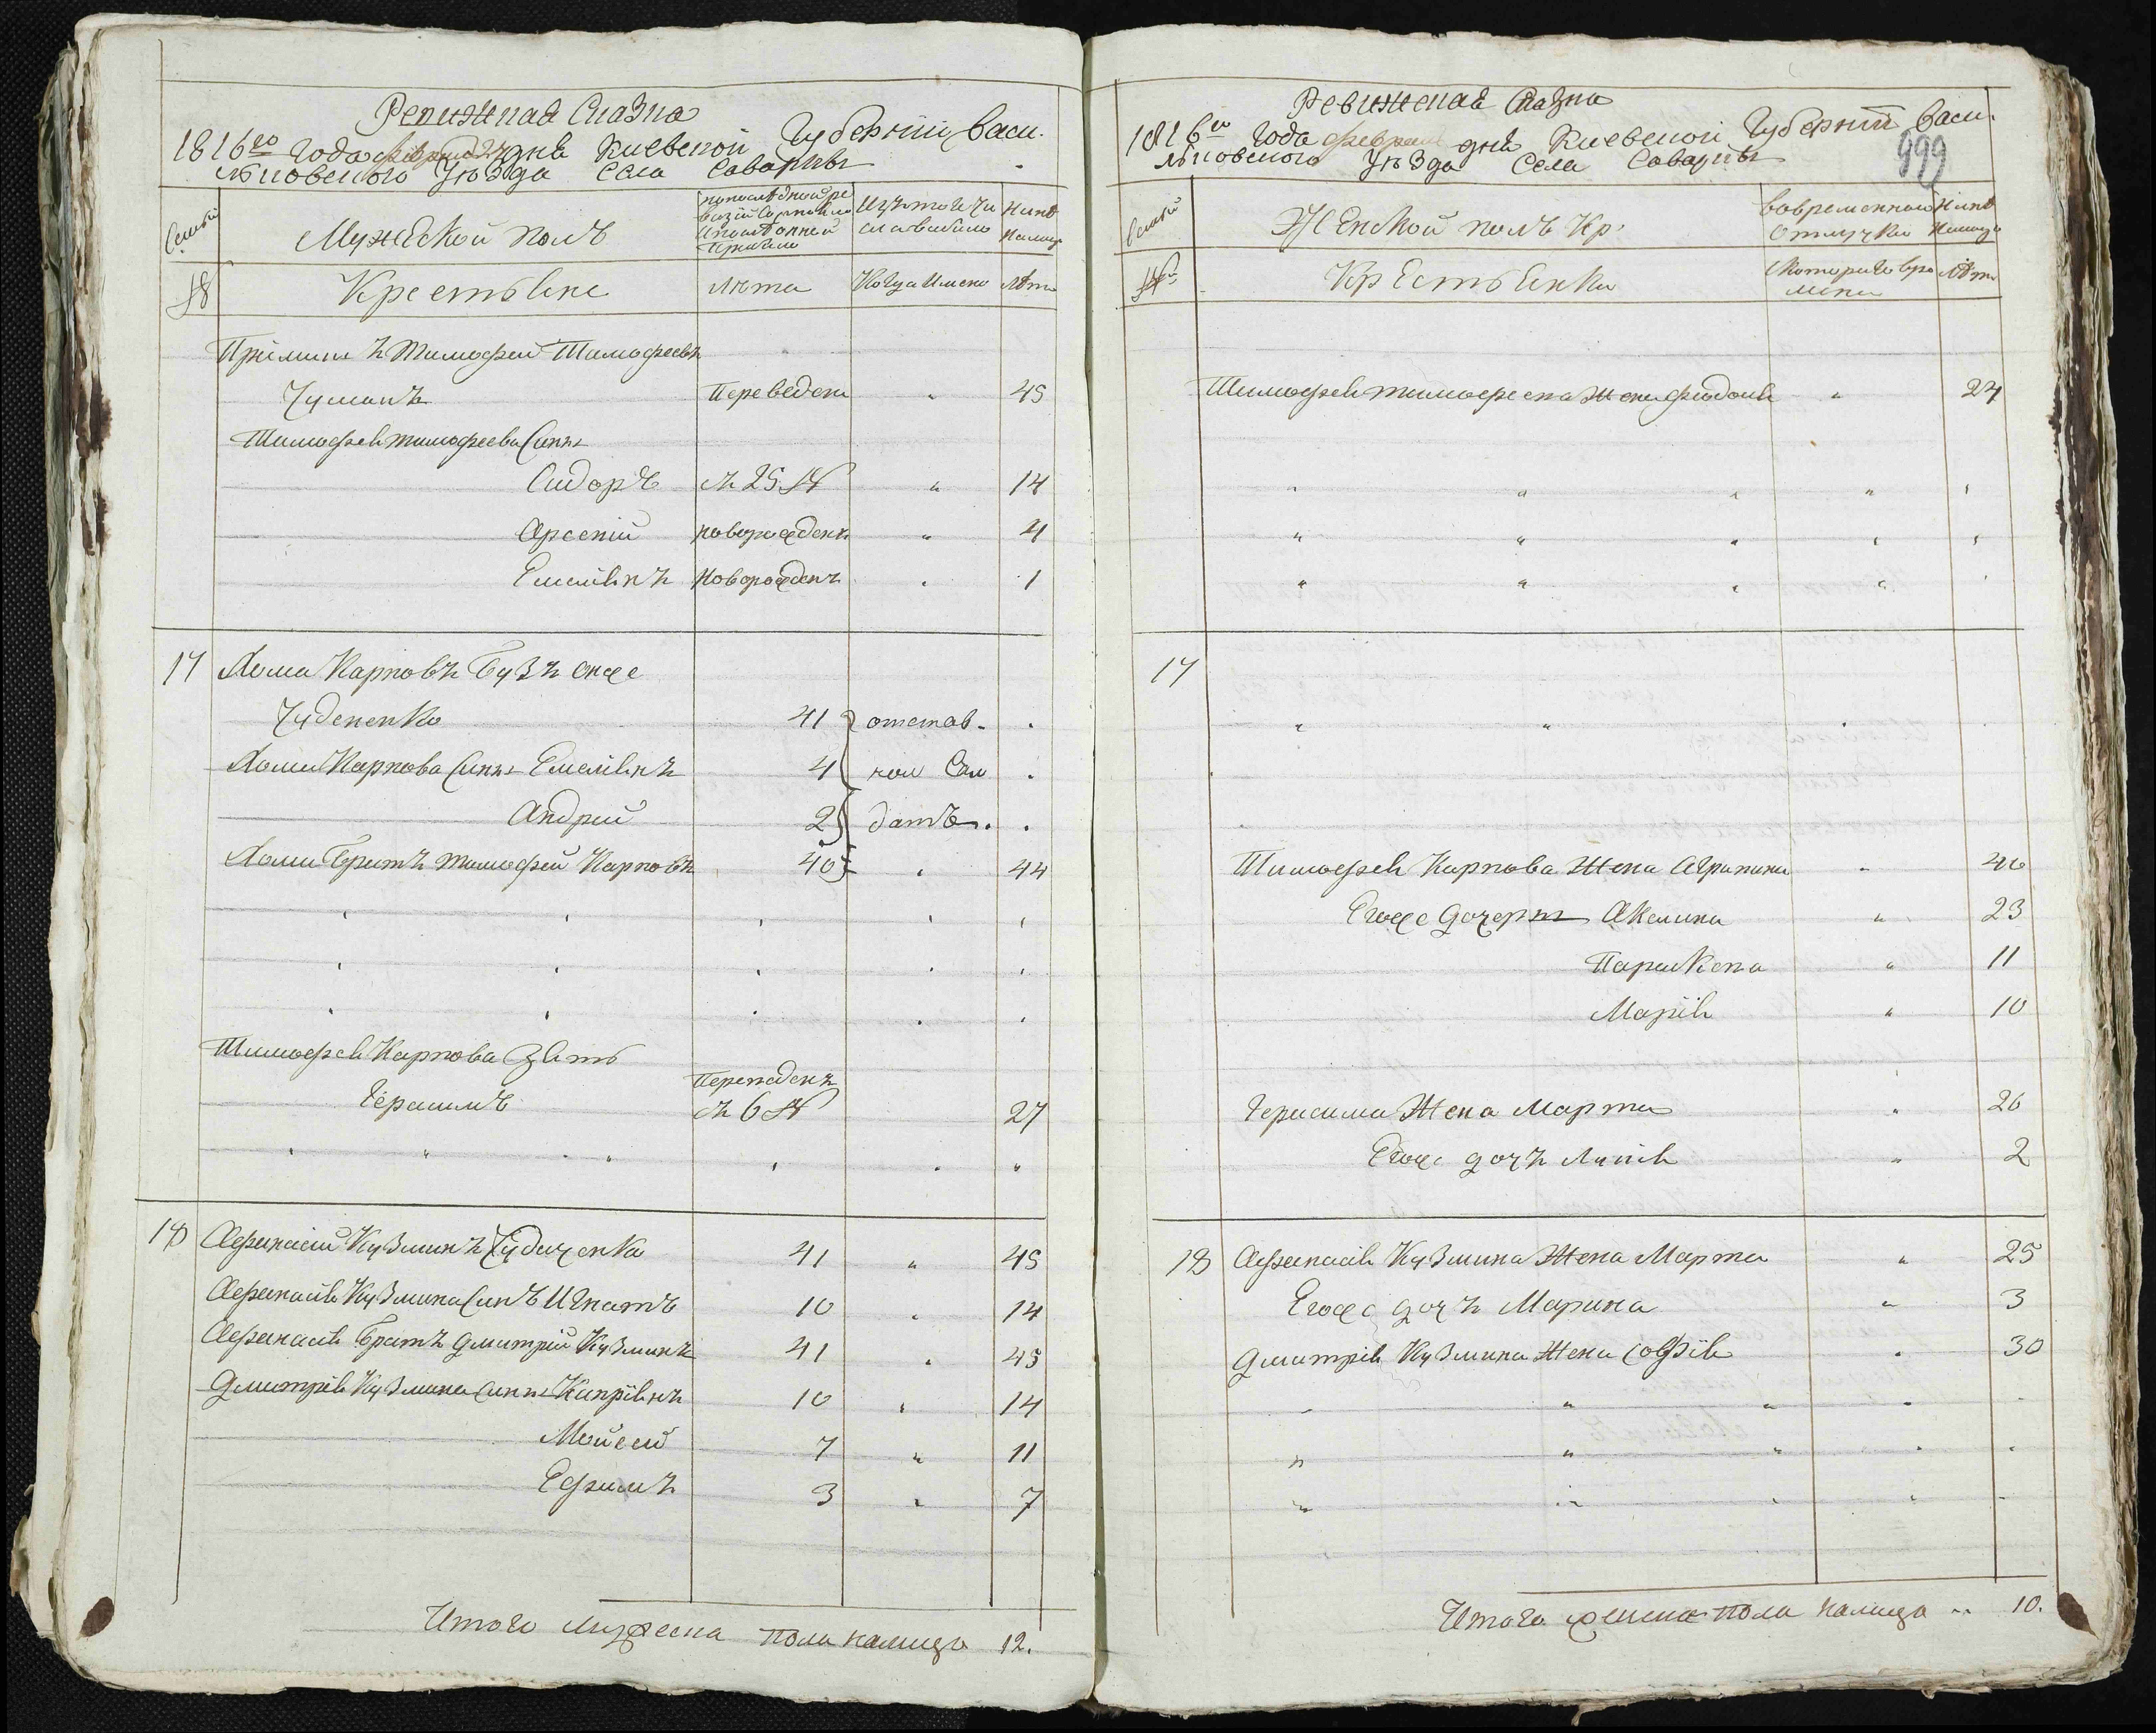 Ревижская Сказка
1816го Года февраля 27 дня Киевской Губернїи Васи-
лковского Уезда Села Саварки
Семьи
Мужеской полъ
по последной ре
визїи состояло
и после онной
прибыло
Изъ того чи
сла выбыло
Ныне
на лицо
№
Крестьяне
Лета
Когда имено
Лета
Прїимыш Тимофей Тимофеевъ
Чуманъ Переведен " 45
Тимофея Тимофеева Сины
Сидоръ съ 25 № " 14
Арсенїй новорожденъ " 4
Емелянъ новорожденъ " 1
17 Хома Карповъ Бузъ онже
Чудененко 41 отстав-
Хомы Карпова Сины Емелянъ 4 ной Сол
Андрей 2 датъ.
Хомы Братъ Тимофей Карповъ 40 " 44
Тимофея Карпова Зять
Герасимъ
съ 6 № 27
18 Афанасий Кузминъ Чудаченка 41 " 45
Афанасия Кузмина Синъ Игнатъ 10 " 14
Афанасия Братъ Дмитрїй Кузминъ 41 " 45
Дмитрїя Кузмина Сины Кипрїянъ 10 " 14
Мойсей 7 " 11
Ефимъ 3 " 7
Итого мужеска пола налицо 12.
Ревижская Сказка
1816го Года февраля дня Киевской Губернїи Васи-
лковского Уезда Села Саварки
999
Семьи
Женской полъ Кр.
Вовременной
отлучки
Ныне
налицо
№
Крестьянки
с которого вре
мени
Лета
Тимофея Тимофеева Жена Феодосия " 24
17
Тимофея Карпова Жена Агрипина " 46
Егоже дочери Акелина " 23
Параскева " 11
Марїя " 10
Герасима Жена Марта " 26
Егоже дочъ " 2
18 Афанасия Кузмина Жена Марта " 25
Егоже дочъ Марина " 3
Дмитрїя Кузмина Жена Софїя " 30
Итого женска пола налицо " 10.